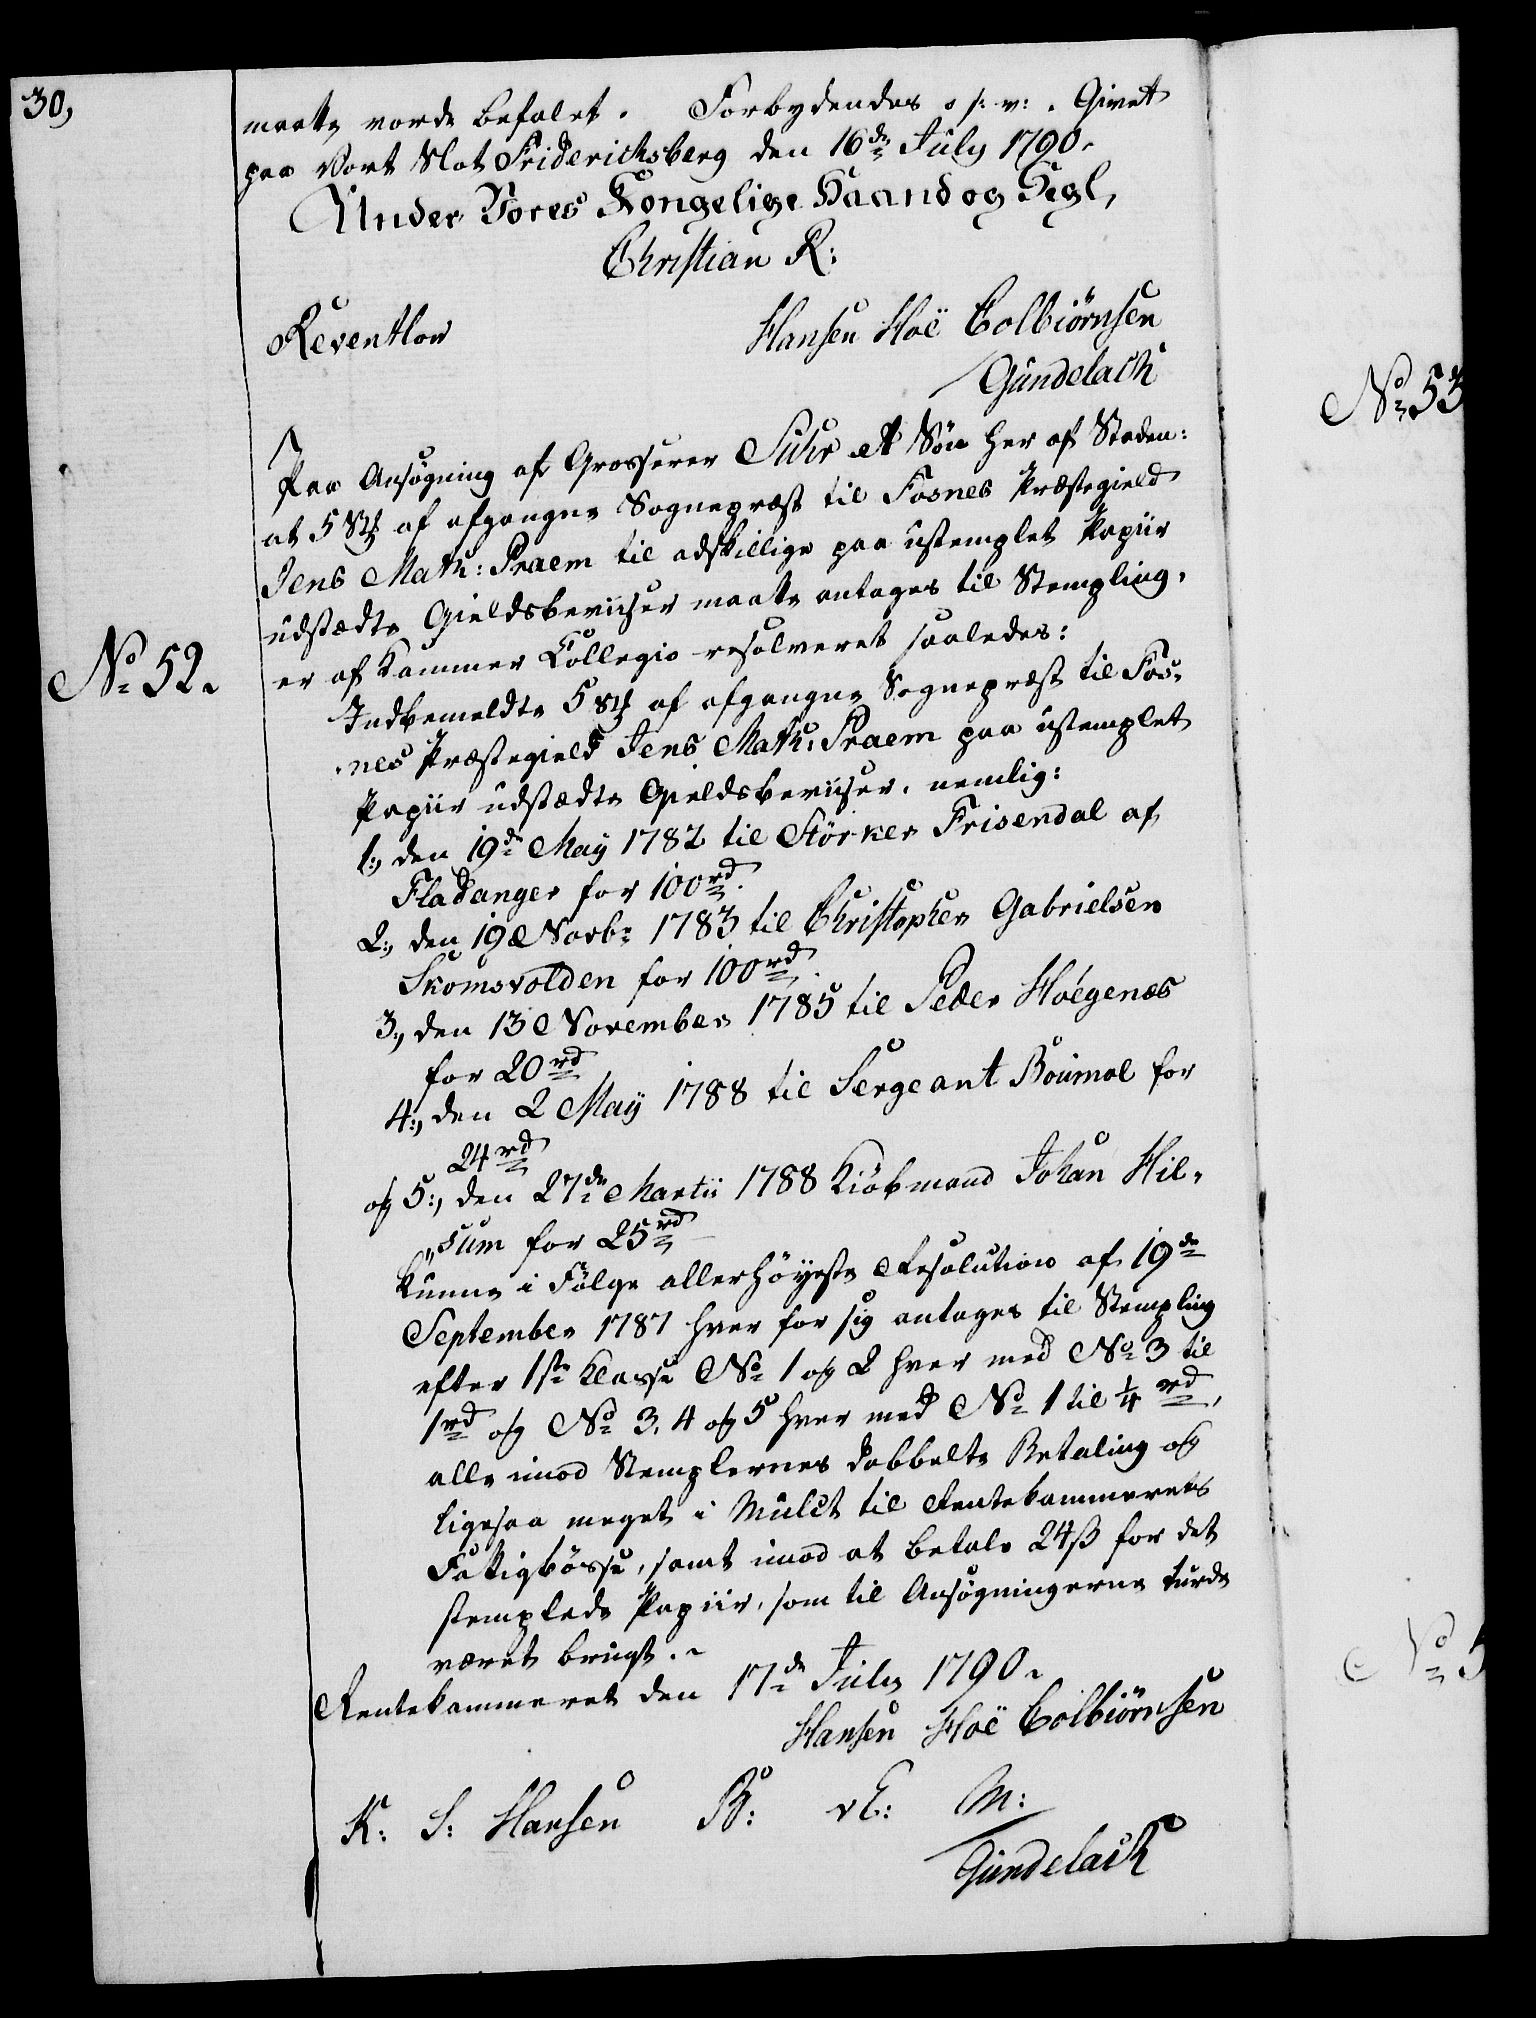 30,
maatte vorde befalet. Forbydendes o s: v: . Givet
paa Vort Slot Friderichsberg den 16de July 1790.
Under Vores Kongelige Haand og Segl,
Christian R:
Reventlow
Hansen Hoë Colbiörnsen
Gündelach
Paa Ansøgning af Grosserer Suhr et Søn her af Staden:
at 5 Stk af afgangne Sognepræst til Fosnes Præstegield
Jens Math: Praem til adskillige paa ustemplet Papiir
udstædte Gieldsbeviiser maatte antages til Stempling,
er af Kammer Collegio resolveret saaledes:
No 52.
Indbemeldte 5 Stk af afgangne Sognepræst til Fos-
nes Præstegield Jens Math: Praem paa ustemplet
Papiir udstædte Gieldsbeviiser, nemlig:
1:, den 19de May 1782 til Störker Frisendal af
Fladanger for 100 rd.
2:, den 19 Novbr 1783 til Christopher Gabrielsen
Skomsvolden for 100 rd.
3:, den 13 November 1785 til Peder Höegenæs
for 20 rd
4:, den 2 May 1788 til Sergeant Boümoe for
24 rd
og 5:, den 27de Martii 1788 Kiöbmand Johan Hil-
"sum for 25 rd
kunne i Følge allerhöyeste Resolution af 19de
September 1787 hver for sig antages til Stempling
efter 1ste Klasse No 1 og 2 hver med No 3 til
1 rd og No 3, 4 og 5 hver med No 1 til 1/4 rd,
alle imod Stemplernes dobbelte Betaling og
ligesaa meget i Mulct til Rentekammerets
Fattigbösse, samt imod at betale 24 ß for det
stemplede Papiir, som til Ansøgningerne burde
været brugt.
Rentekammeret den 17de July 1790.
Hansen Hoë Colbiörnsen
K: S: Hansen B: M:
Gündelach
No 53
No 5